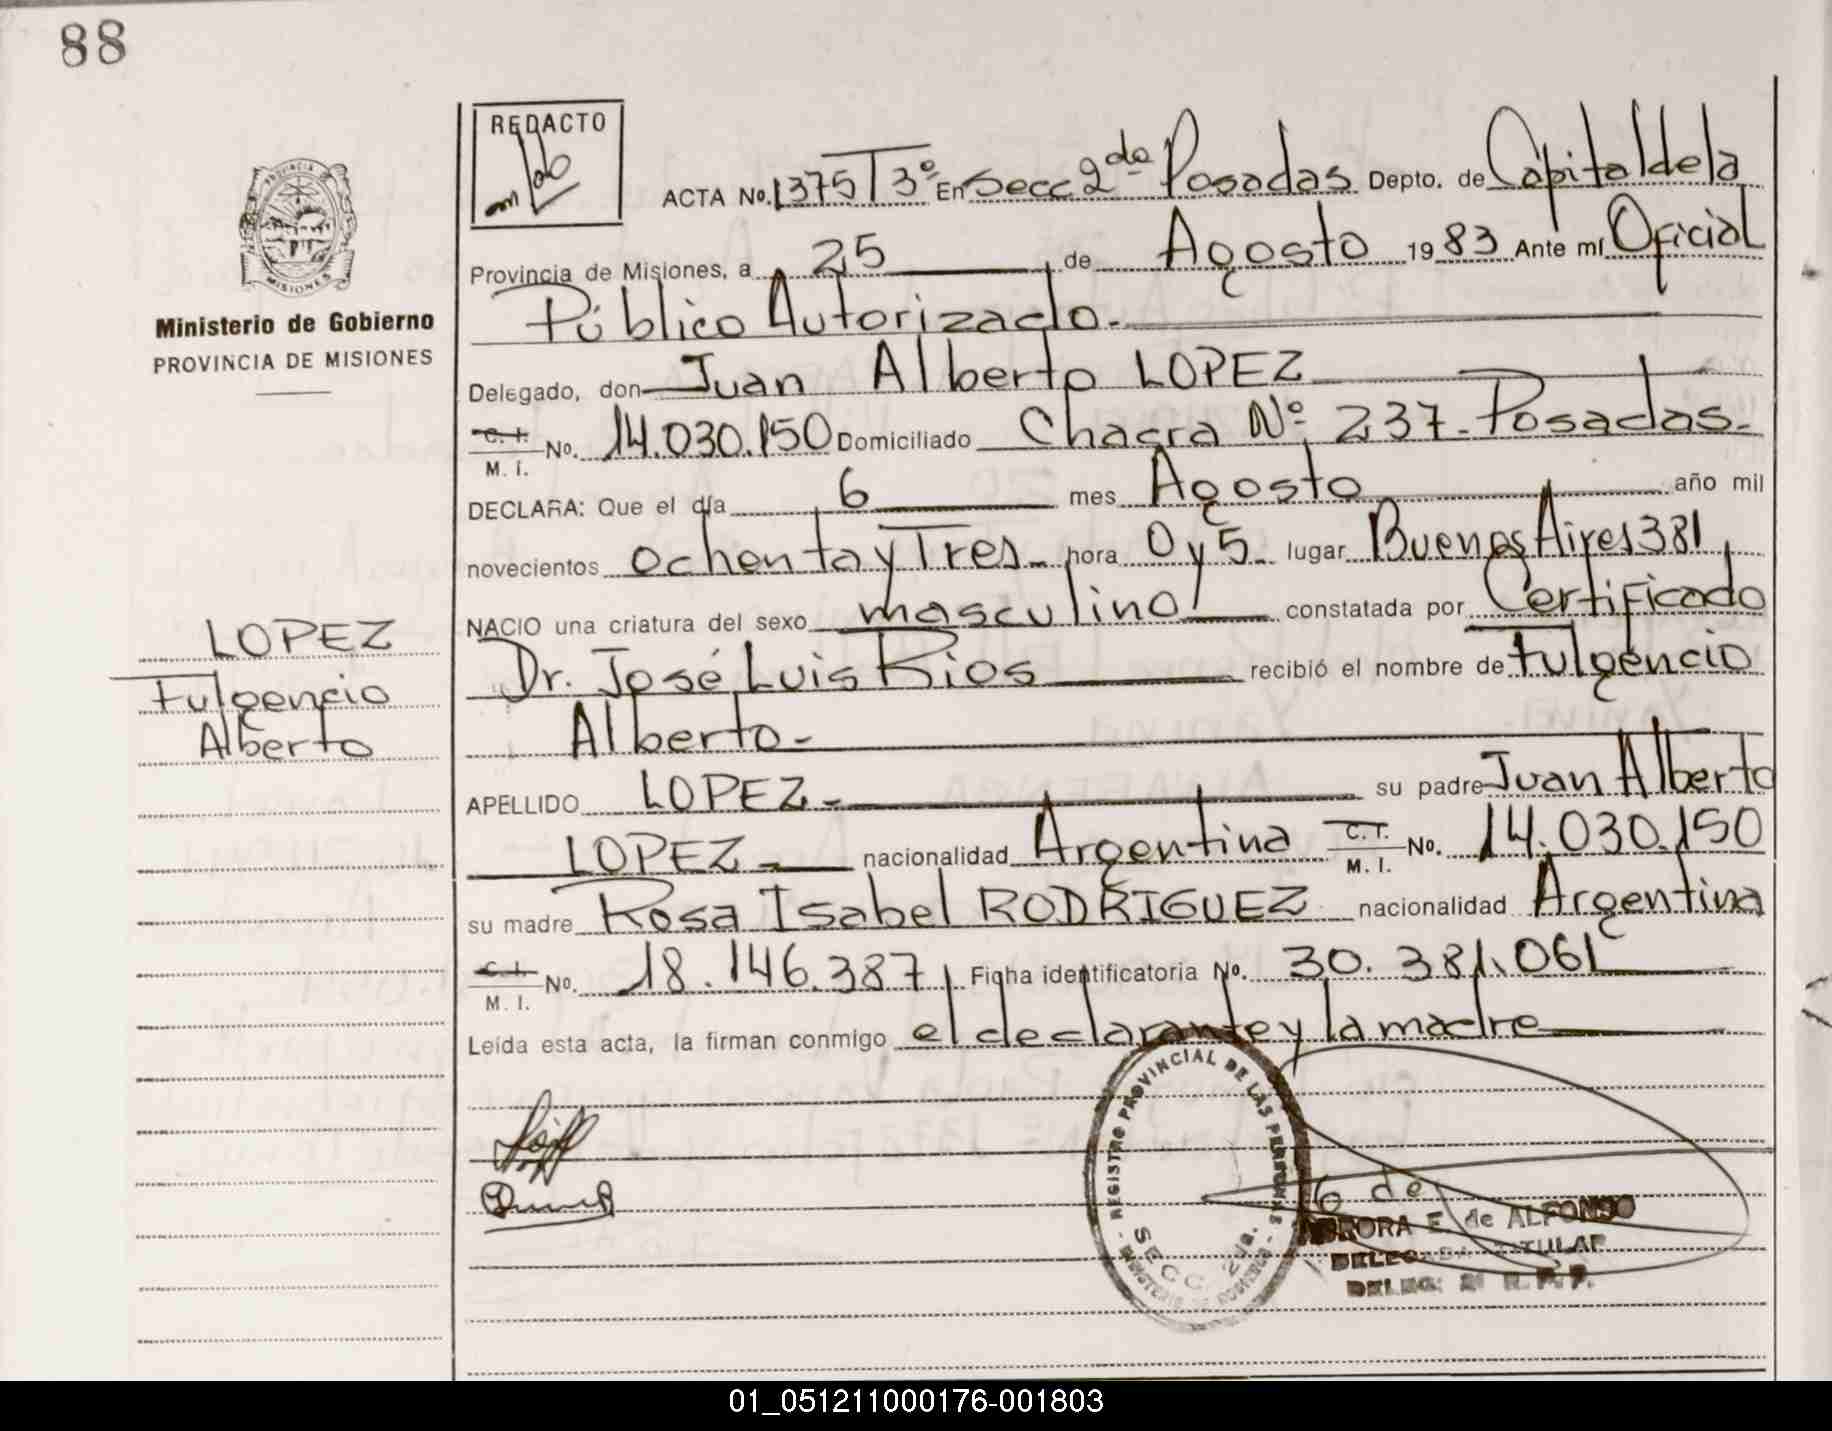 88
REDACTO
ACTA No. 1375 T 3º En Secc 2da Posadas Depto. de Capital de la
Provincia de Misiones, a 25 de Agosto 1983 Ante mí Oficial
Público Autorizado.-
Delegado, don Juan Alberto LOPEZ
C. I.
M. I. No. 14.030.150 Domiciliado Chacra Nº 237- Posadas.-
DECLARA: Que el día 6 mes Agosto año mil
novecientos ochenta y Tres- hora 0 y 5- lugar Buenos Aires 1381
NACIO una criatura del sexo masculino constatada por Certificado
Dr. José Luis Rios recibió el nombre de Fulgencio
Alberto-
APELLIDO LOPEZ- su padre Juan Alberto
LOPEZ- nacionalidad Argentina C. I.
M. I. No. 14.030.150
su madre Rosa Isabel RODRIGUEZ nacionalidad Argentina
C. I.
M. I. No. 18.146.387 Ficha identificatoria No. 30.381.061
Leída esta acta, la firman conmigo el declarante y la madre
PROVINCIA DE
MISIONES
Ministerio de Gobierno
PROVINCIA DE MISIONES
LOPEZ
Fulgencio
Alberto
REGISTRO PROVINCIAL DE LAS PERSONAS
SECC. 2da.
MINISTERIO DE GOBIERNO
AURORA E. de ALFONSO
DELEGADA TITULAR
DELEG. 2ª R. P. P.
01_051211000176-001803